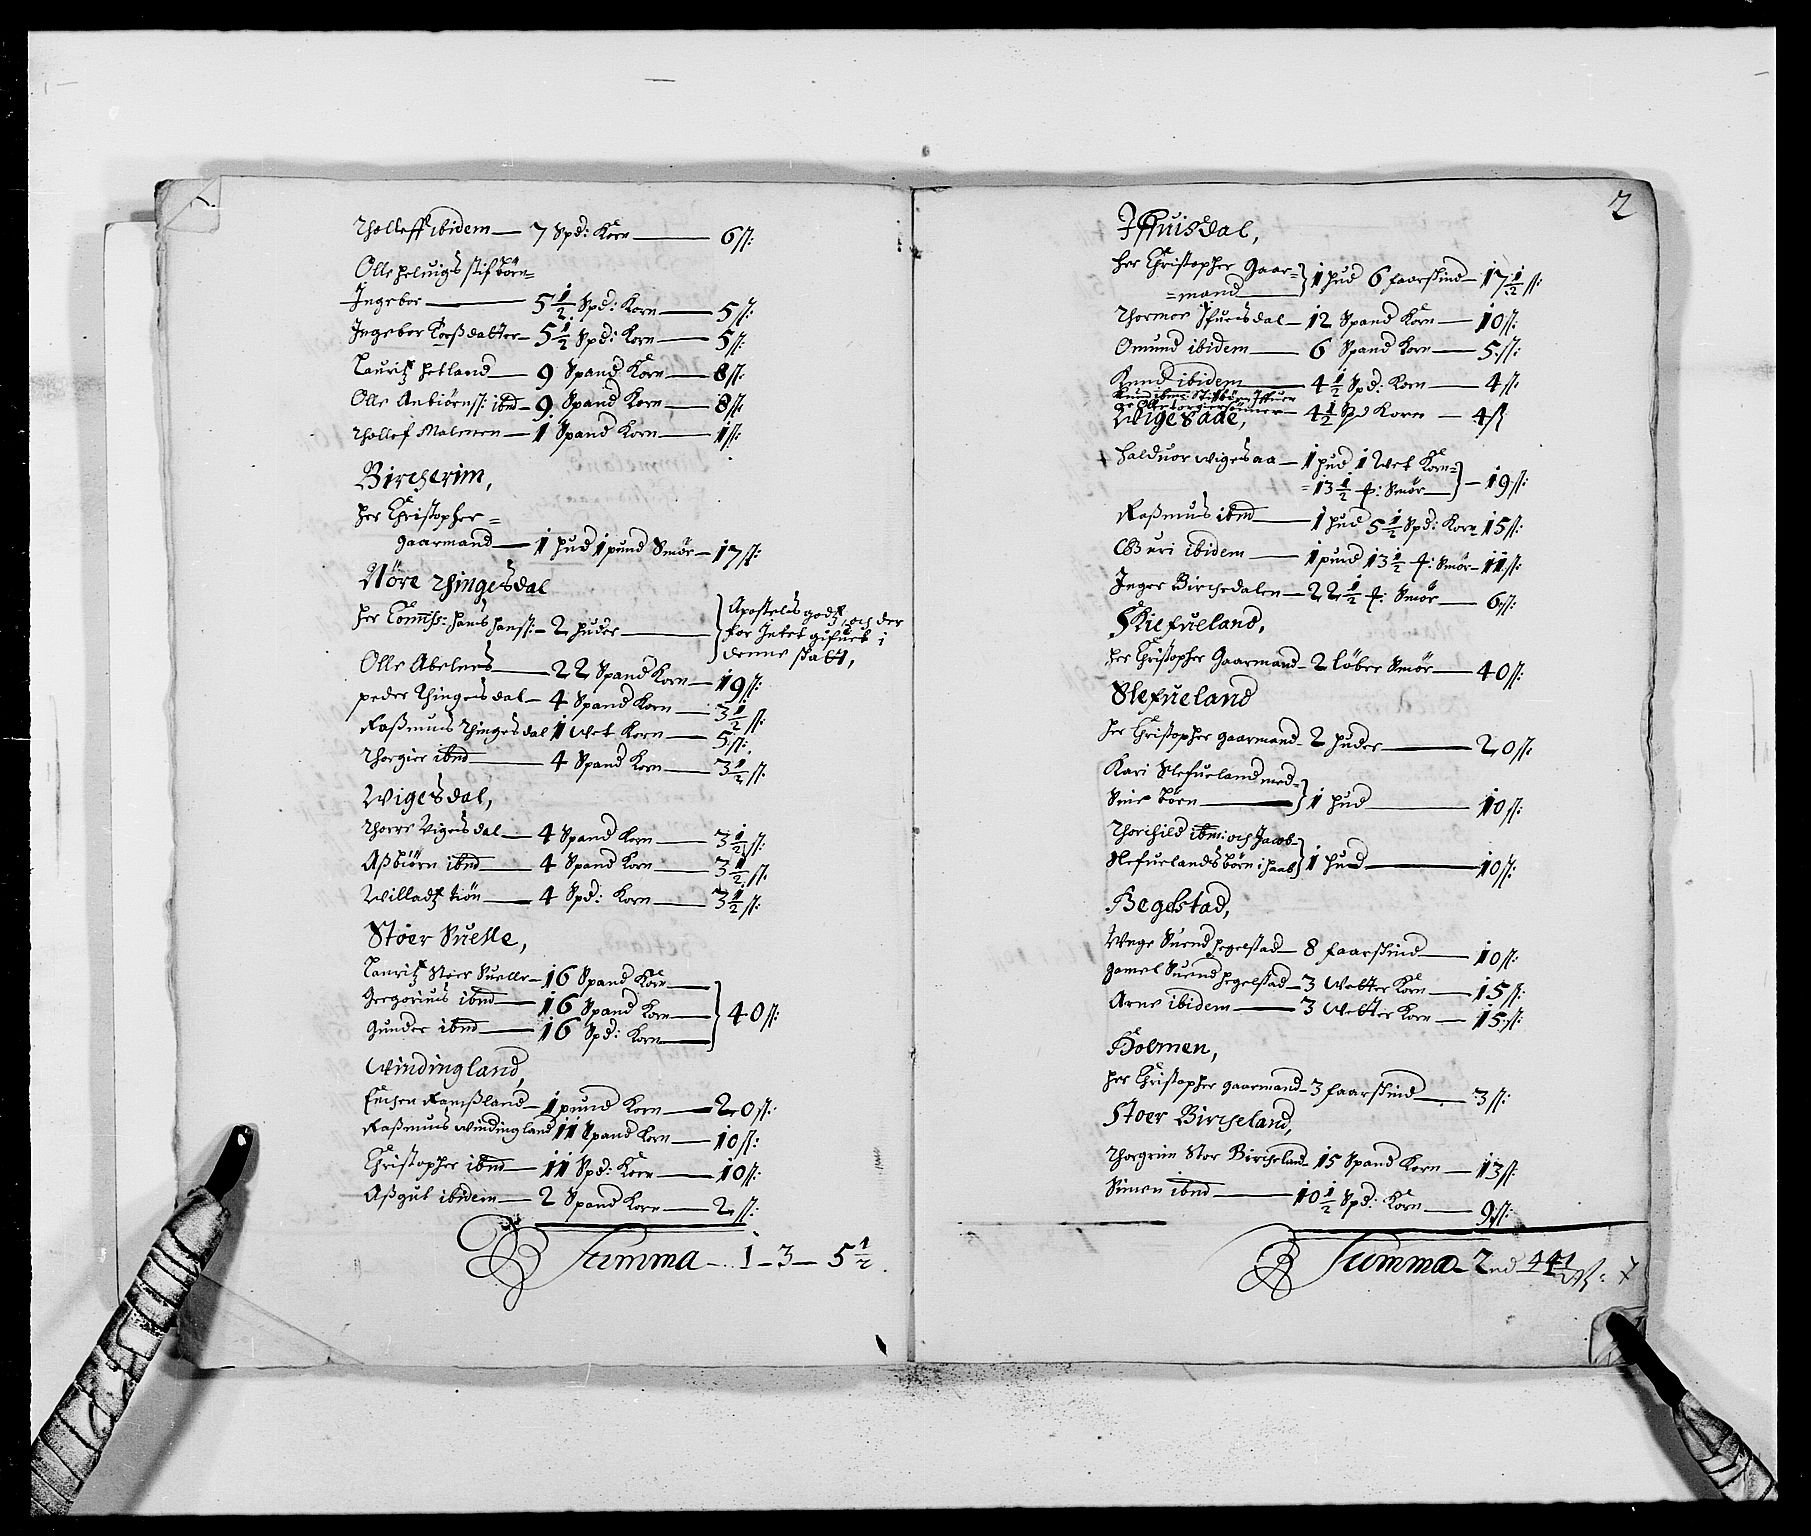 Tholleff ibidem — 7 Spd: Korn — 6 ß:
Olle heluigs stifbörn=
Ingebor — 5 1/2 Spd: Korn — 5 ß:
Ingebor Toeßdatter — 5 1/2 Spd: Korn — 5 ß:
Lauritz hetland — 9 Spand Korn — 8 ß:
Olle Anbiörnß: ibnd — 9 Spand Korn — 8 ß:
Thollef Malenen — 1 Spand Korn — 1 ß:
Bircherim,
her Christopher=
gaarmand — 1 hud 1 pund Smör — 17 ß:
Nöre Thingesdal
her Commiss: hans hanß: — 2 huder — } Apostelis godtz, och der
for Intet gifuet i
denne skatt,
Olle Abelnes — 22 Spand Korn — 19 ß:
peder Thingesdal — 4 Spand Korn — 3 1/2 ß:
Raßmus Thingesdal 1 Wet Korn — 5 ß:
Thorgier ibnd — 4 Spand Korn — 3 1/2 ß:
Wigesdal,
Thorre Vigesdal — 4 Spand Korn — 3 1/2 ß:
Aßbiörn ibnd — 4 Spand Korn — 3 1/2 ß:
Willadtz tiön — 4 Spd: Korn — 3 1/2 ß:
Stoer Suelle,
Lauritz Stoer Suelle — 16 Spand Korn —
Gregorius ibnd — 16 Spand Korn — } 40 ß:
Gunder ibnd — 16 Spd: Korn —
Windingland,
Enchen Ramßland — 1 pund Korn — 20 ß:
Raßmus Windingland 11 Spand Korn — 10 ß:
Christopher ibnd — 11 Spd: Korn — 10 ß:
Aßgut ibidem — 2 Spand Korn — 2 ß:
Summa — 1 — 3 — 5 1/2
2
Iffuisdal,
her Christopher Gaar=
=mand — } 1 hud 6 faarskind — 17 1/2 ß:
Thormoe Ifuersdal — 12 Spand Korn — 10 ß:
Omund ibidem — 6 Spand Korn — 5 ß:
Knud ibidem — 4 1/2 Spd: Korn — 4 ß
4 1/2 Spd Korn — 4 ß
Wigesade,
+ halduor Wigesaa — 1 hud 1 Wet Korn=
= 13 1/2 #: Smör — } — 19 ß:
Raßmus ibnd — 1 hud 5 1/2 Spd: Korn — 15 ß:
Guri ibidem — 1 pund 13 1/2 #: Smör — 11 ß:
Inger Birchedalen — 22 1/2 #: Smör — 6 ß:
Skiefueland,
her Christopher Gaarmand — 2 löber Smör — 40 ß:
Slefueland
her Christopher gaarmand — 2 huder — 20 ß:
Kari Slefueland med=
Sine börn — } 1 hud — 10 ß:
Thorchild ibm: och Jacob=
Slefuelands börn i haab } 1 hud — 10 ß:
Hegelstad,
Unge Suend hegelstad — 8 faarskind — 10 ß:
gamel Suend hegelstad — 3 Wetter Korn — 15 ß:
Arne ibidem — 3 Wetter Korn — 15 ß:
Holmen,
her Christopher gaarmand — 3 faarskind — 3 ß:
Stoer Bircheland,
Thorgrim Stor Bircheland — 15 Spand Korn — 13 ß:
Simen ibnd — 10 1/2 Spd: Korn — 9 ß:
Summa — 2 44 1/2 ß: